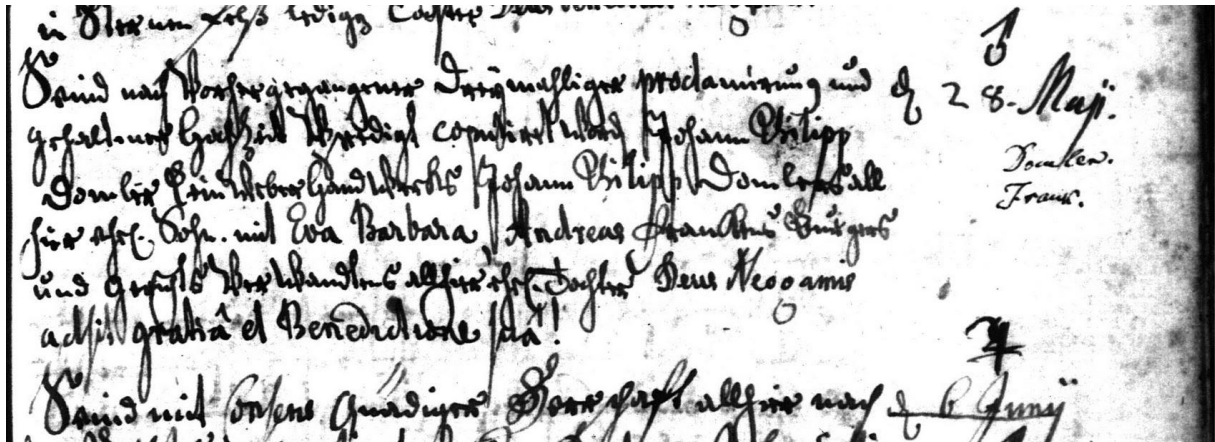 in ledige Tochter
Seind nach Vorhergegangener dreymahliger proclamirung und d 28. Maji.
gehaltener HochZeit Predigt copulirt word Johann Philipp
Domler LeinWeber HandWercks Johann Philipp Domlers all
Domler.
Franck.
hier ehel. Sohn. mit Eva Barbara, Andreas Franckens Burgers
und Gerichts Verwandtens allhier ehel. Tochter Deus Neogamis
adsit gratiâ et Benedictione suâ!
Seind mit Consens Gnädiger Herrschaft allhier nach d 6 Junij